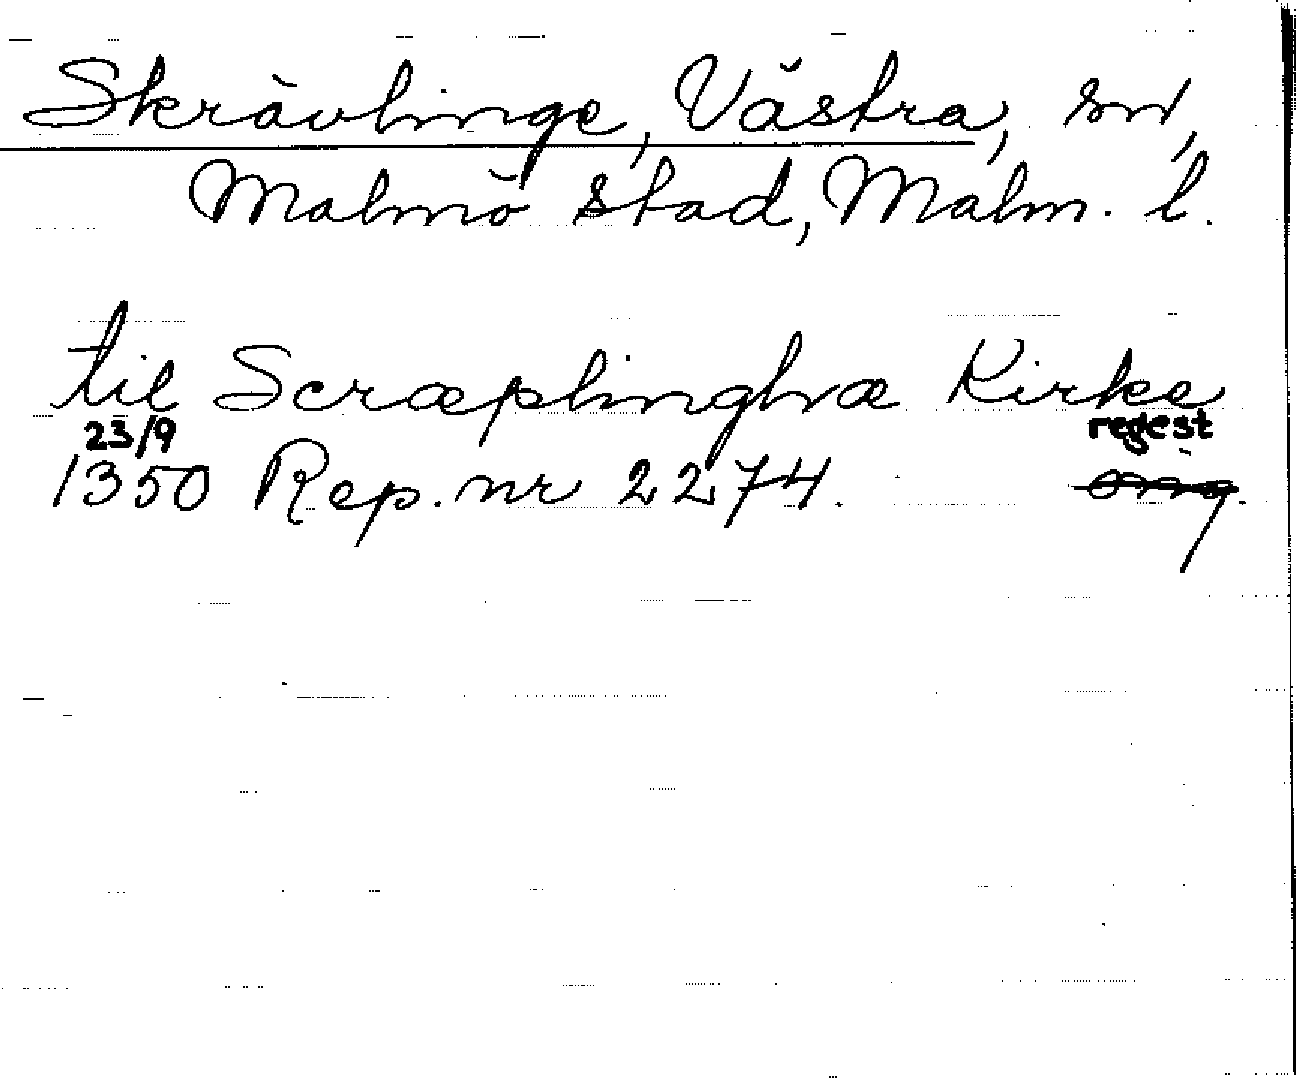 Skrävlinge, Västra, sn,
Malmö stad, Malm. l.
til Scræplinghæ Kirke
23/9 regest
1350 Rep. nr 2274. omg.